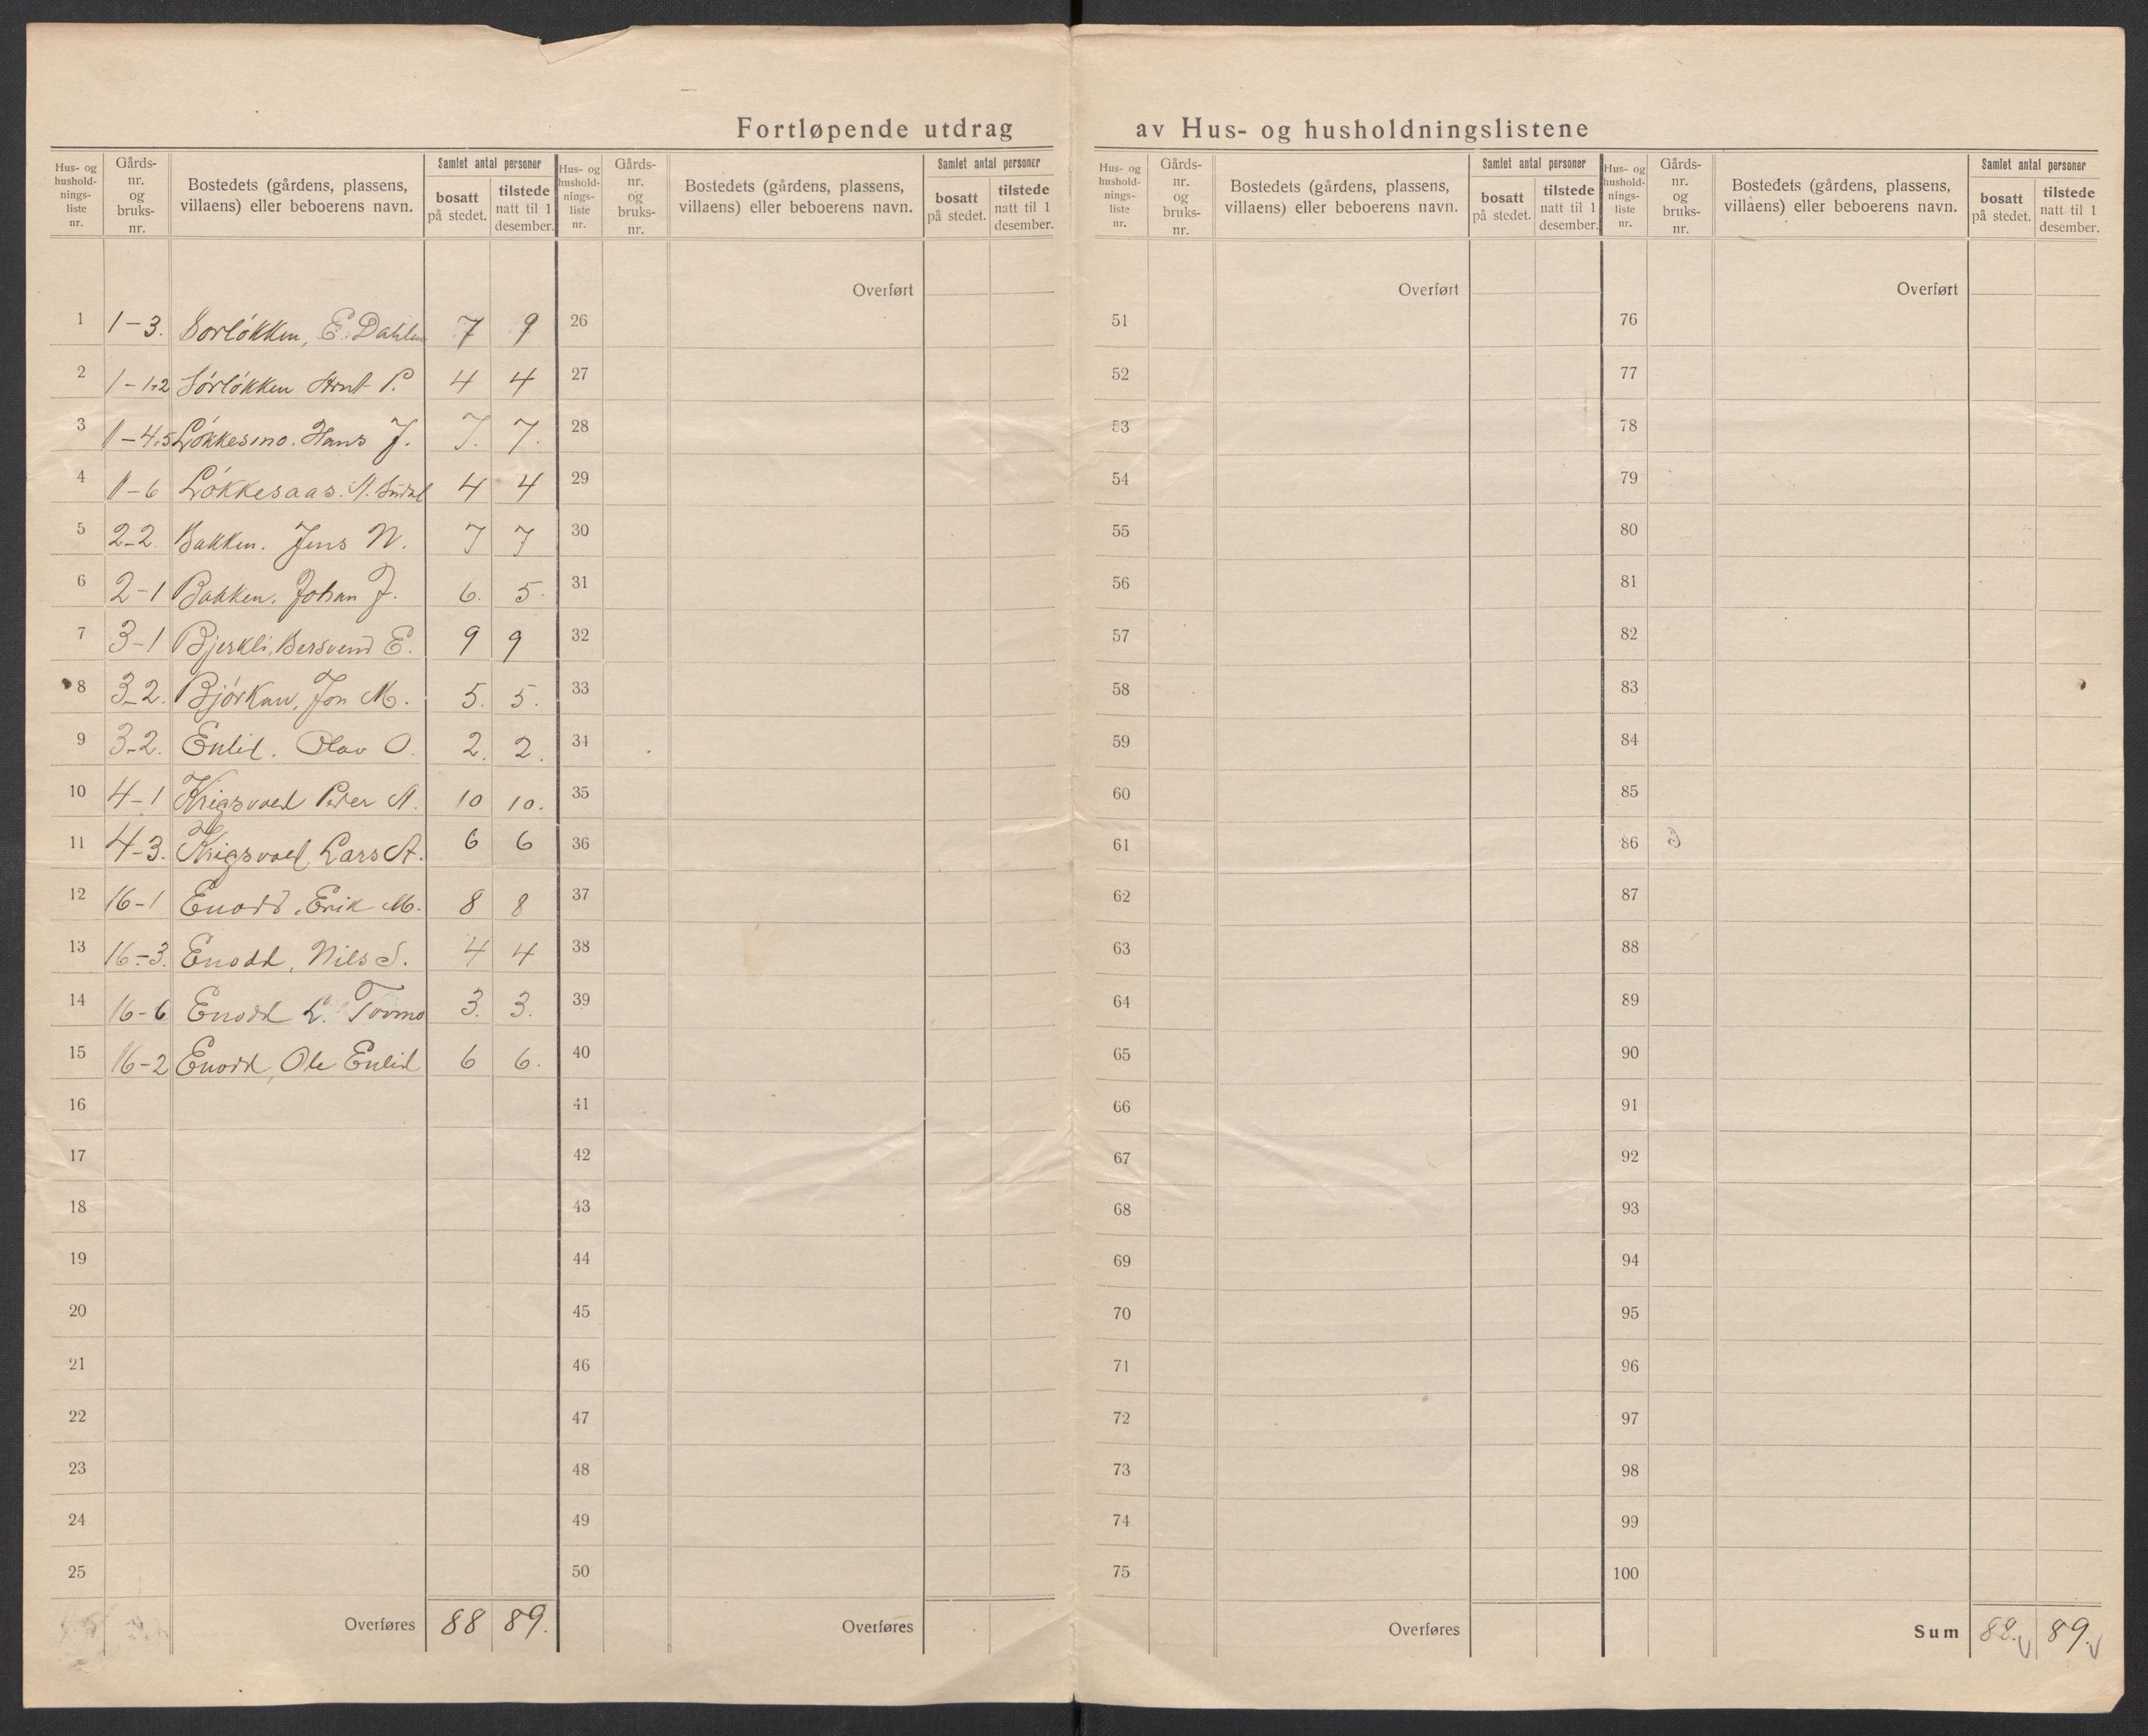 Fortløpende utdrag av Hus- og husholdningslistene
Hus- og hushold-nings-liste nr. Gårds-nr. og bruks-nr. Bostedets (gårdens, plassens, villaens) eller beboerens navn. Samlet antal personer bosatt på stedet. tilstede natt til 1 desember.
Hus- og hushold-nings-liste nr. Gårds-nr. og bruks-nr. Bostedets (gårdens, plassens, villaens) eller beboerens navn. Samlet antal personer bosatt på stedet. tilstede natt til 1 desember.
Hus- og hushold-nings-liste nr. Gårds-nr. og bruks-nr. Bostedets (gårdens, plassens, villaens) eller beboerens navn. Samlet antal personer bosatt på stedet. tilstede natt til 1 desember.
Hus- og hushold-nings-liste nr. Gårds-nr. og bruks-nr. Bostedets (gårdens, plassens, villaens) eller beboerens navn. Samlet antal personer bosatt på stedet. tilstede natt til 1 desember.
Overført Overført Overført
1 1-3. Sorløkken, E. Dahlen 7 9 26 51 76
2 1-1,2 Sørløkken Arnt P. 4 4 27 52 77
3 1-4,5 Løkkesmo. Hans J. 7. 7. 28 53 78
4 1-6 Løkkesaas. 4 4 29 54 79
5 2-2. Bakken. Jens N. 7 7 30 55 80
6 2-1 Bakken. Johan J. 6. 5. 31 56 81
7 3-1 Bjerkli, Bersvend E. 9 9 32 57 82
8 3-2. Bjørkan, Jon M. 5. 5. 33 58 83
9 3-2. Enlid. Olav O. 2. 2. 34 59 84
10 4-1 Krigsvoll Peder A. 10 10. 35 60 85
11 4-3. Krigsvoll, Lars A. 6 6 36 61 86
12 16-1 Enodd, Erik M. 8 8 37 62 87
13 16-3. Enodd, Nils S. 4 4 38 63 88
14 16-6 Enodd L. Tormo 3. 3. 39 64 89
15 16-2 Enodd, Ole Enlid 6 6. 40 65 90
16 41 66 91
17 42 67 92
18 43 68 93
19 44 69 94
20 45 70 95
21 46 71 96
22 47 72 97
23 48 73 98
24 49 74 99
25 50 75 100
Overføres 88 89. Overføres Overføres Sum 88. 89.